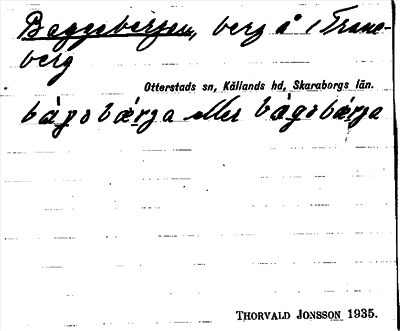 Baggebergen, berg å 1 Trane-
berg
Otterstads sn, Källands hd, Skaraborgs län.
bágobærja eller bágobærja
THORVALD JONSSON 1935.